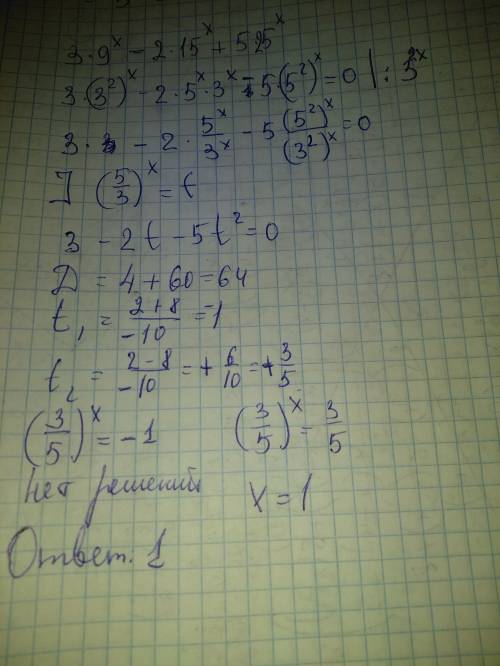 3·9^x − 2·15^x + 5 25^x
3·(3²)^x − 2·5^x·3^x − 5·(5²)^x = 0 | : 3^2x
3· − 2· 5^x/3^x − 5 (5²)^x/(3²)^x = 0
] (5/3)^x = t
3 − 2t − 5t² = 0
D = 4 + 60 = 64
t₁ = (2+8)/−10 = −1
t₂ = (2−8)/−10 = + 6/10 = + 3/5
(3/5)^x = −1 (3/5)^x = 3/5
нет решений x = 1
Ответ: 1